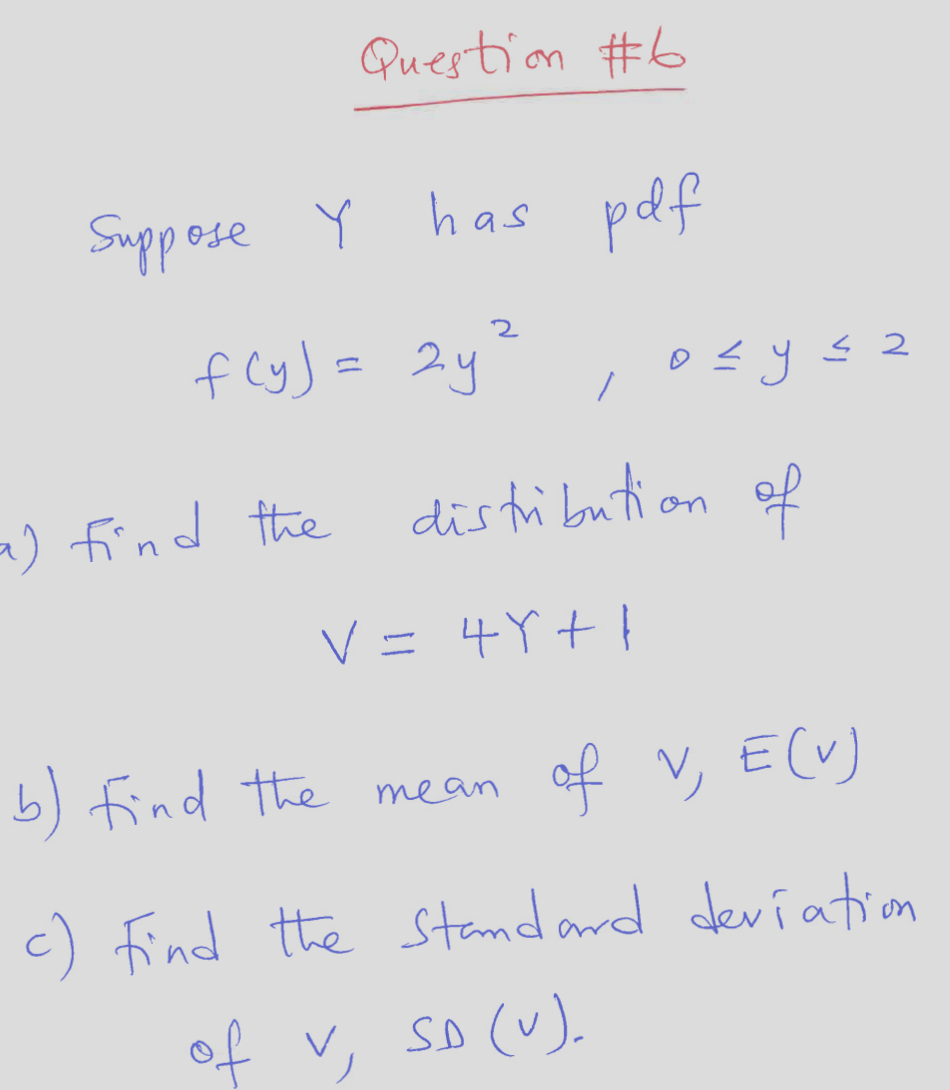 Question #6
Suppose Y has pdf
f(y) = 2y² , 0 ≤ y ≤ 2
a) Find the distribution of
V = 4Y + 1
b) Find the mean of V, E(V)
c) Find the standard deviation
of V, SD (V).